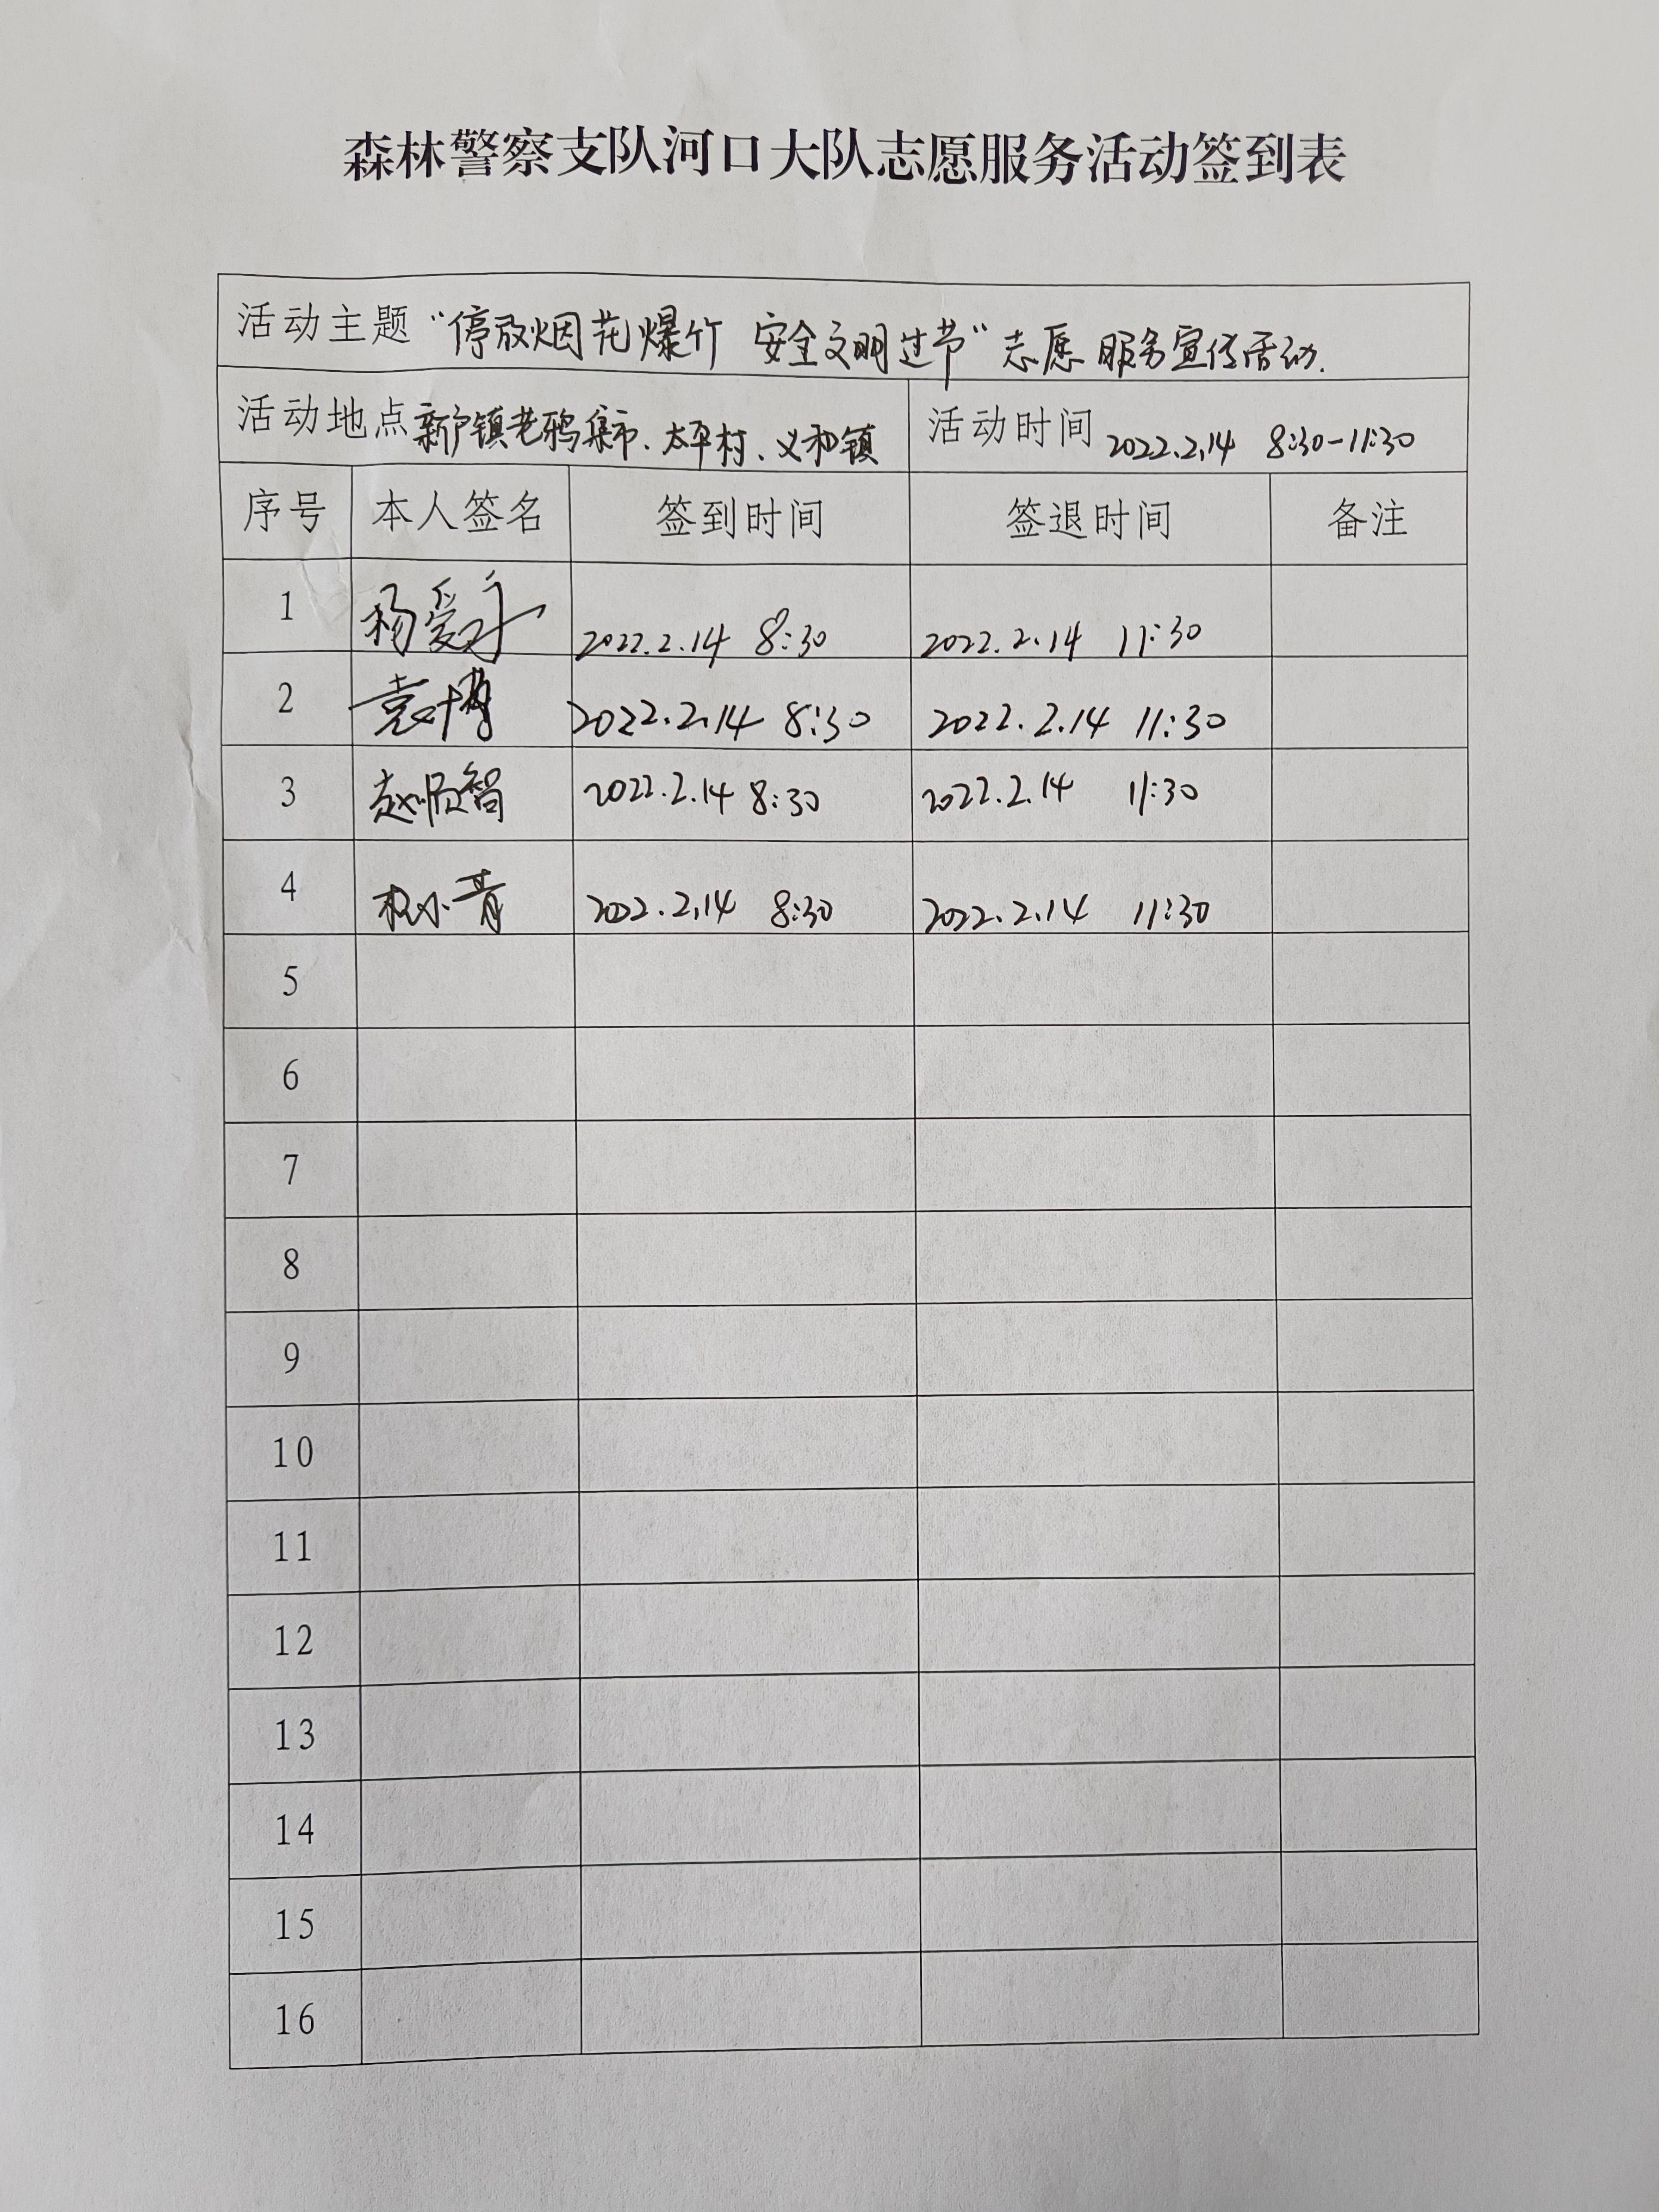 森林警察支队河口大队志愿服务活动签到表
活动主题 “停放烟花爆竹 安全文明过节” 志愿服务宣传活动.
活动地点 新户镇老鸦集市、太平村、义和镇 活动时间 2022.2.14 8:30-11:30
序号 本人签名 签到时间 签退时间 备注
1 杨爱 2022.2.14 8:30 2022.2.14 11:30
2 袁博 2022.2.14 8:30 2022.2.14 11:30
3 赵顺智 2022.2.14 8:30 2022.2.14 11:30
4 小青 2022.2.14 8:30 2022.2.14 11:30
5
6
7
8
9
10
11
12
13
14
15
16